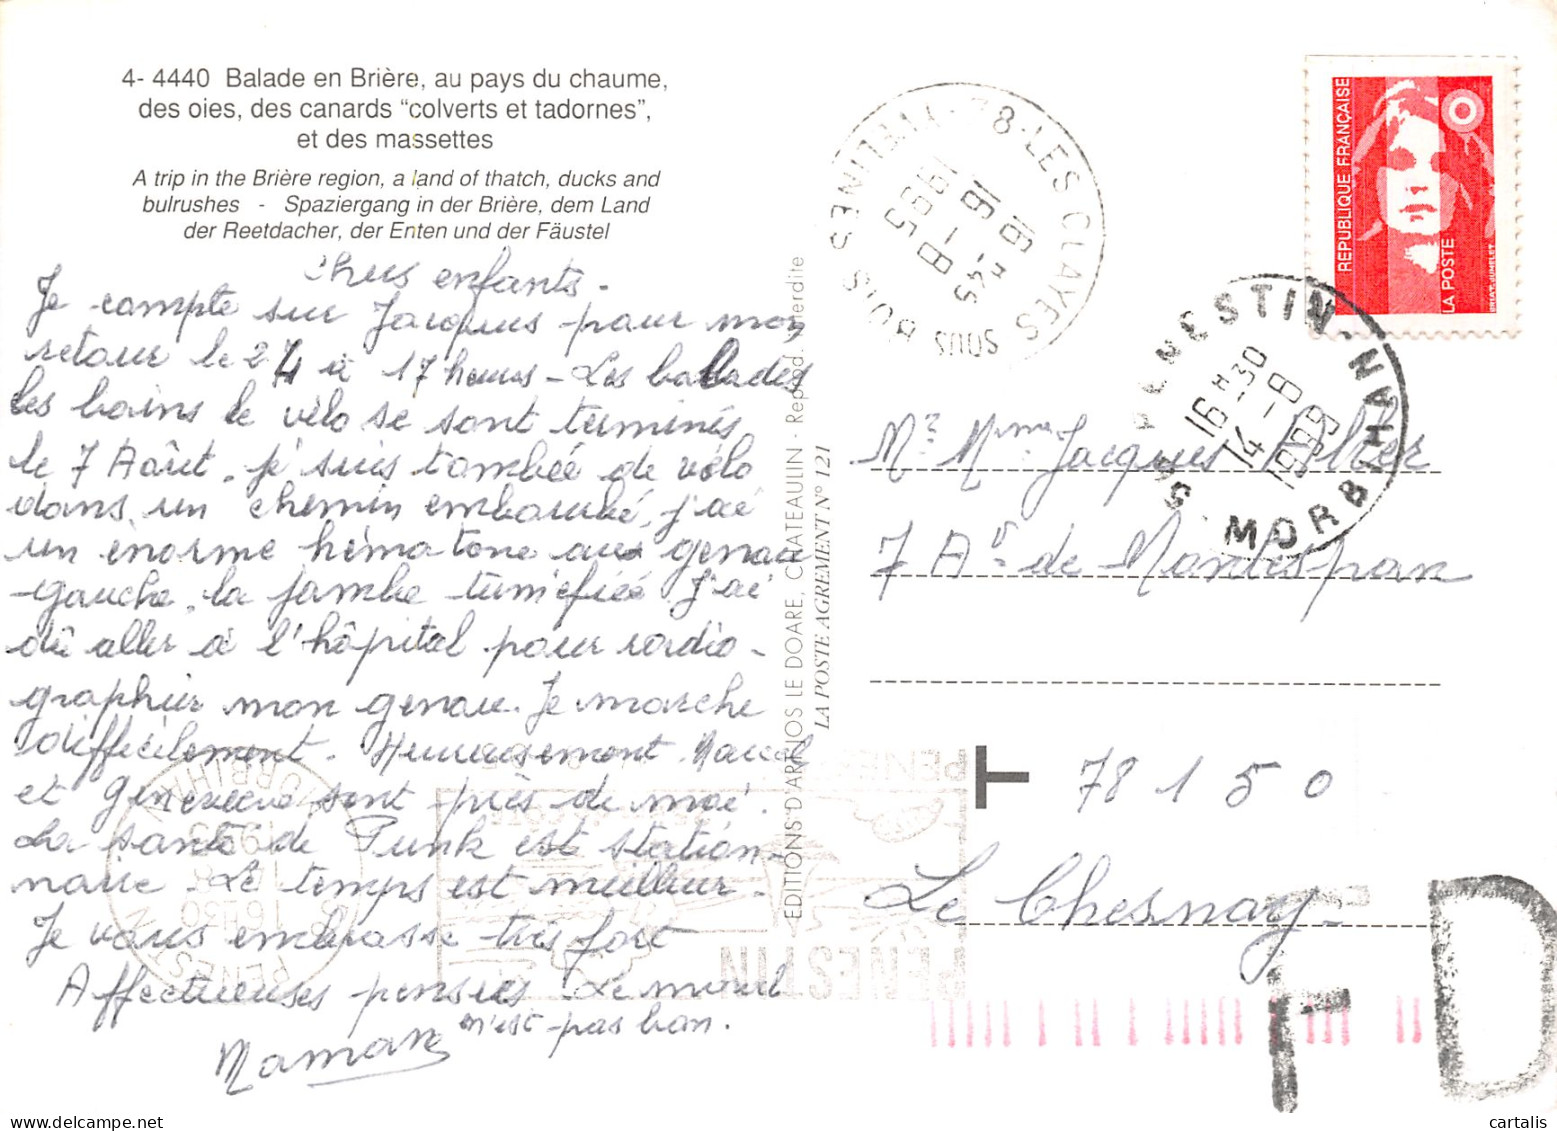 4- 4440 Balade en Brière, au pays du chaume,
des oies, des canards "colverts et tadornes",
et des massettes
A trip in the Brière region, a land of thatch, ducks and
bulrushes - Spaziergang in der Brière, dem Land
der Reetdacher, der Enten und der Fäustel
Chers enfants.
Je compte sur Jacques pour mon
retour le 24 à 17 heures - Les ballades
les bains le vélo se sont terminés
le 7 Août. Je suis tombée de vélo
dans un chemin embourbé, j'ai
un énorme hématome au genou
gauche, la jambe tuméfiée J'ai
dû aller à l'hôpital pour radio-
graphier mon genou. Je marche
difficilement. Heureusement Marcel
et Geneviève sont près de moi.
La santé de Punk est station-
naire. Le temps est meilleur.
Je vous embrasse très fort
Affectueuses pensées Le moral
n'est pas bon.
Maman
EDITIONS D'ART JOS LE DOARE, CHATEAULIN - Reprod. interdite
LA POSTE AGREMENT N° 121
78 - LES CLAYES SOUS BOIS YVELINES
16 H 45
16 - 8
1995
REPUBLIQUE FRANÇAISE
LA POSTE
BRIAT. JUMELET
56 PENESTIN MORBIHAN
16 H 30
14 - 8
Mr Mme Jacques
7 Av. de Montespan
T
78150
Le Chesnay
PENESTIN
PENESTIN
MORBIHAN
16H30
FD
cartalis